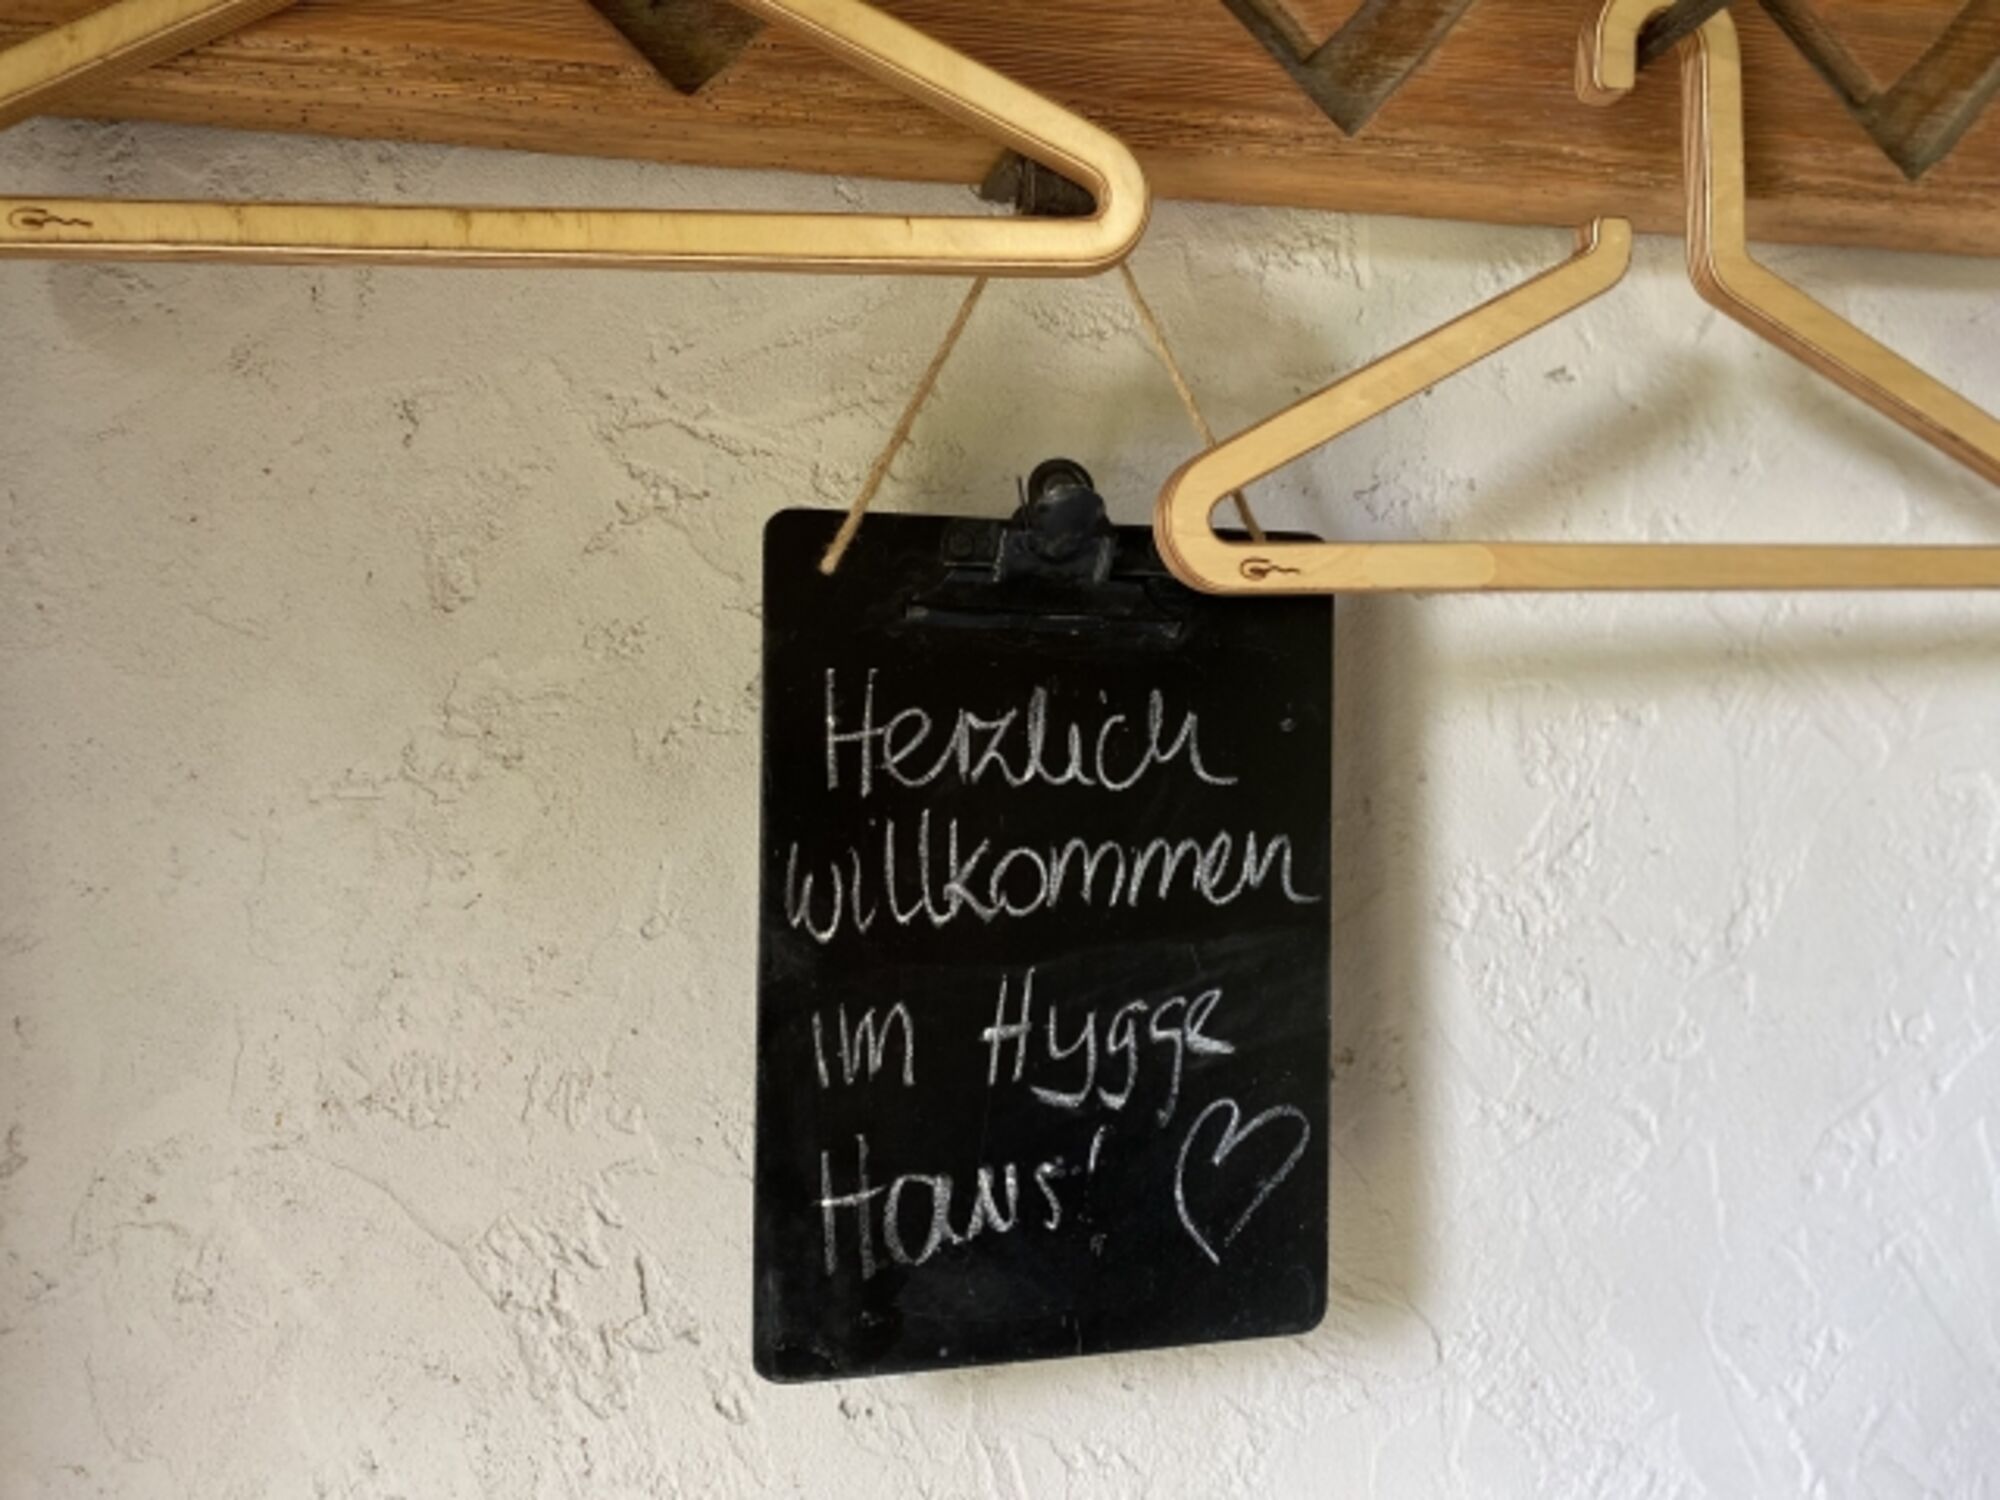 Herzlich
willkommen
im Hygge
Haus!